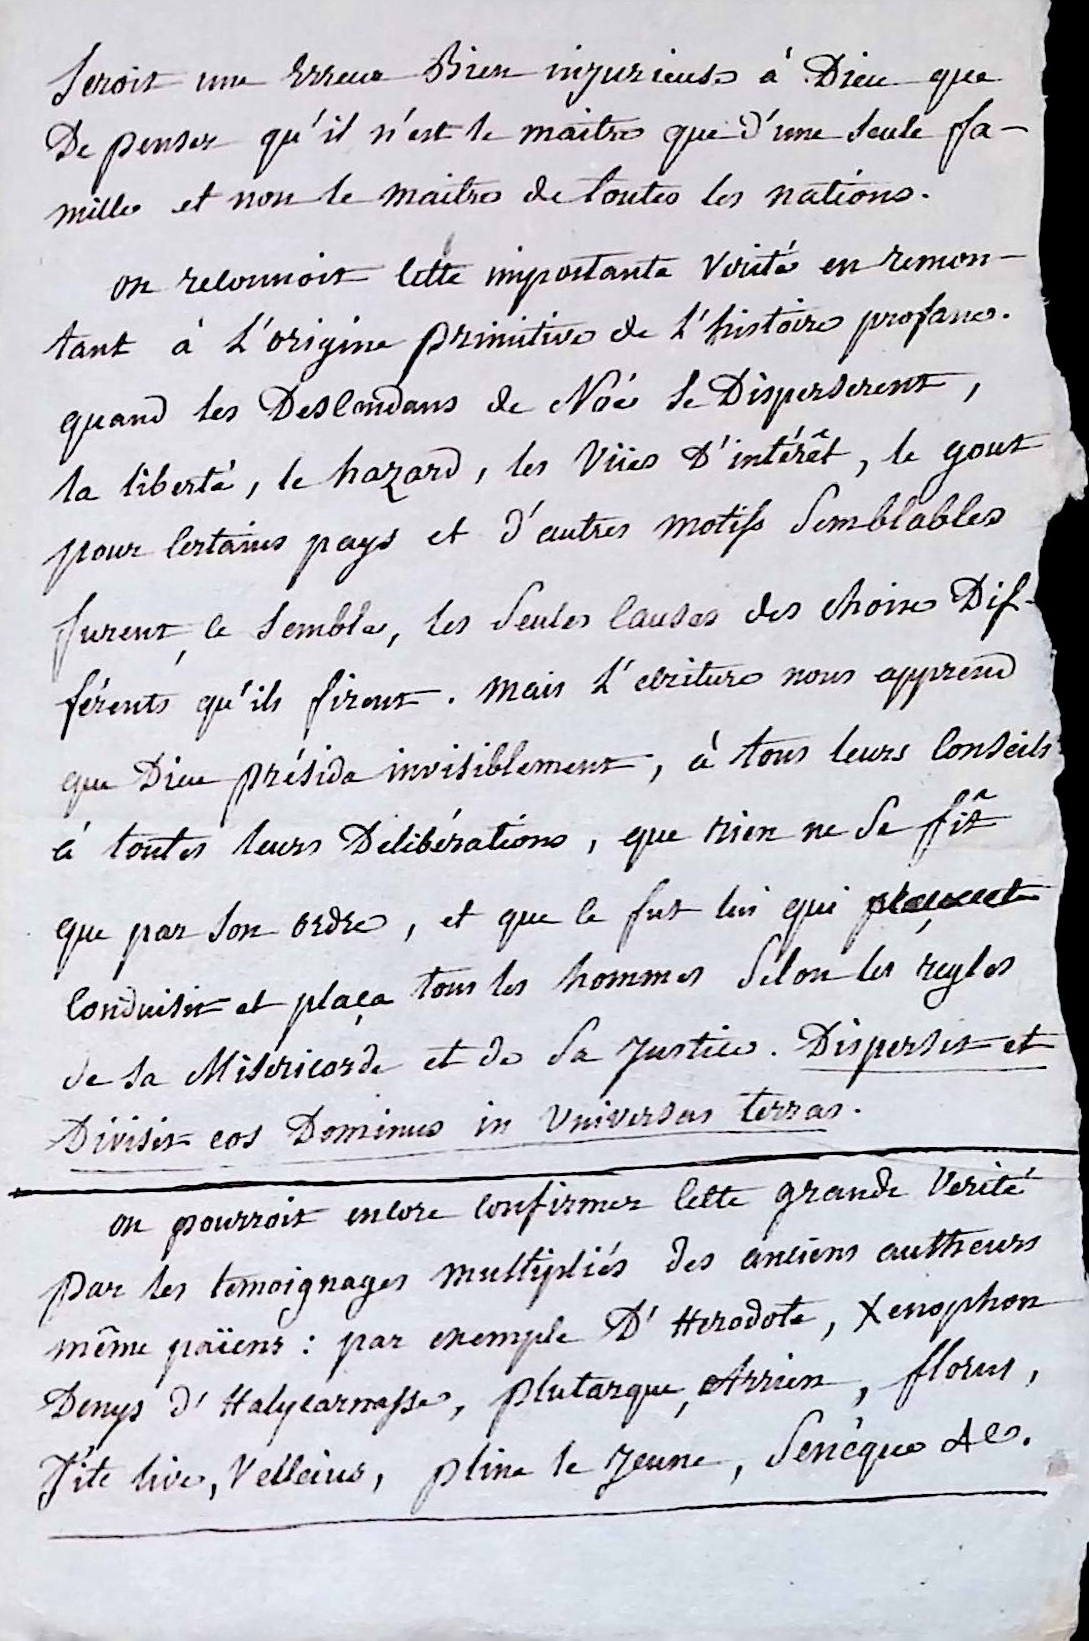 Seroit une Erreur Bien injurieuse à Dieu que
De penser qu'il n'est le maitre que d'une seule fa-
mille et non le maitre de toutes les nations.
on reconnoit cette importante Verité en remon-
tant à L'origine primitive de L'histoire profane.
quand les Descendans de Noé se Disperserent,
la liberté, le hazard, les Vües D'intérêt, le gout
pour certains pays et d'autres motifs Semblables
furent, ce semble, les Seules causes des choix Dif-
férents qu'ils firent. mais L'ecriture nous apprend
que Dieu présida invisiblement, à tous leurs Conseils
à toutes leurs Délibérations, que rien ne se fît
que par son ordre, et que ce fut lui qui
Conduisit et plaça tous les hommes Selon les regles
de sa Misericorde et de Sa Justice. Dispersit et
Divisit eos Dominus in Universas terras.
on pourroit encore confirmer cette grande Verité
par les temoignages multipliés des anciens autheurs
même païens : par exemple D'Herodote, Xenophon
Denys d'Halycarnasse, plutarque, Arrien, florus,
Tite live, Velleius, pline le Jeune, Senèque &c.